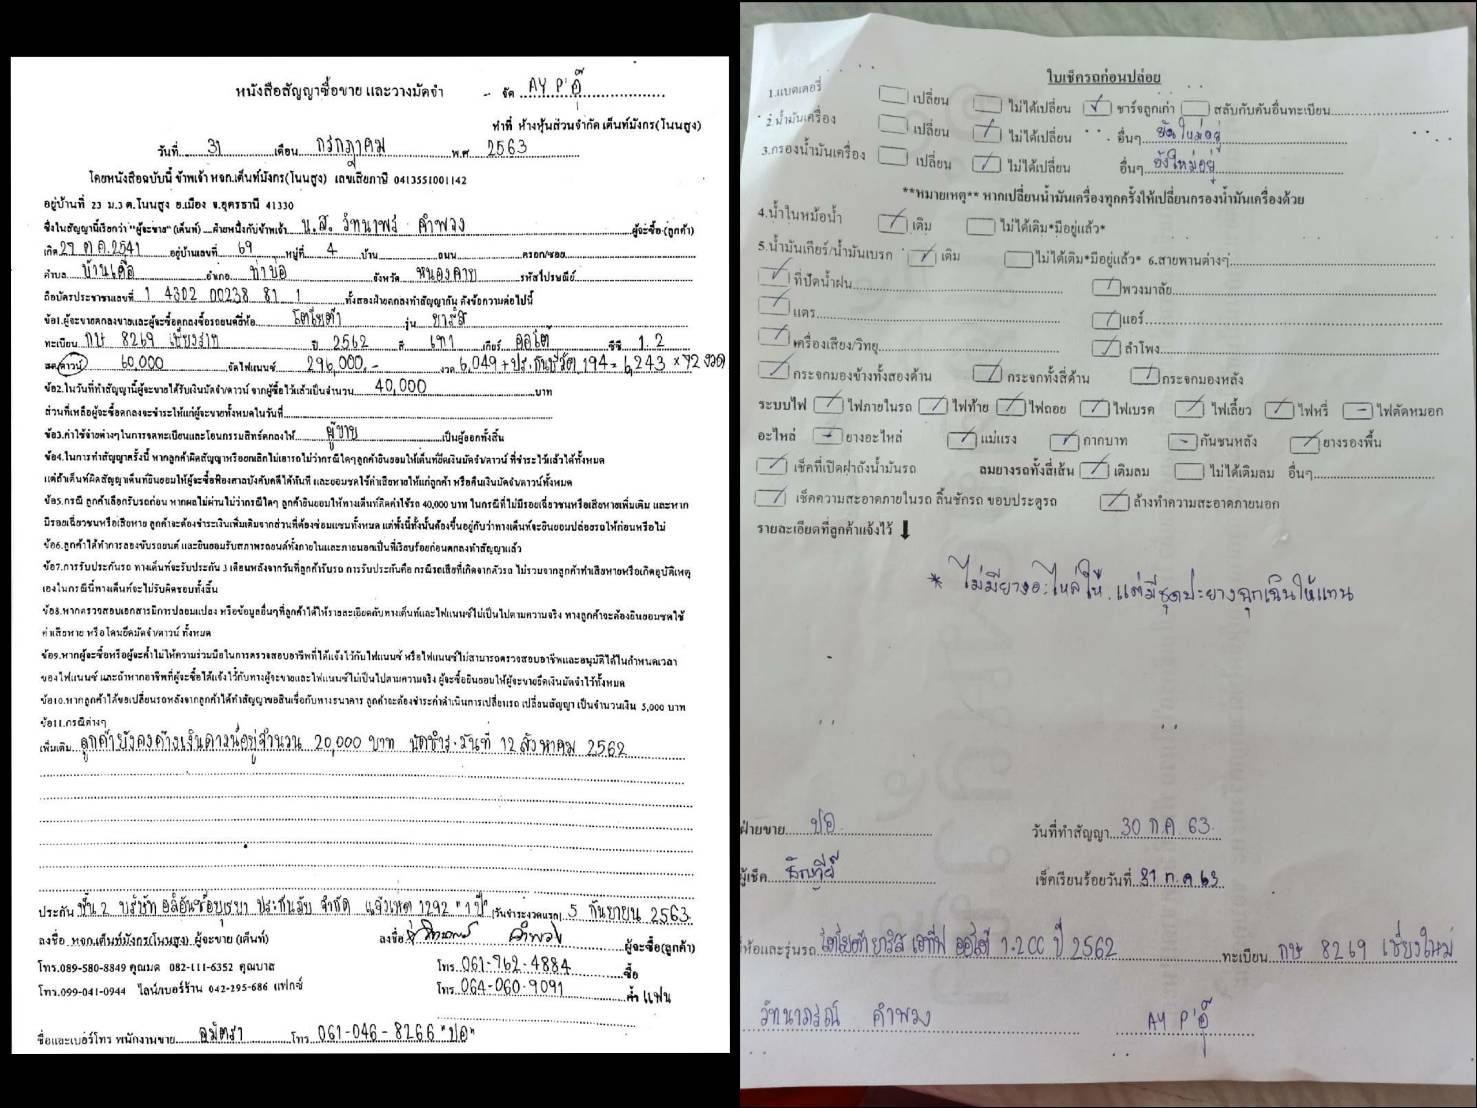 หนังสือสัญญาซื้อขาย และวางมัดจำ - จัด AY P'อู๊
ทำที่ ห้างหุ้นส่วนจำกัด เต็นท์มังกร(โนนสูง)
วันที่ 31 เดือน กรกฎาคม พ.ศ 2563
โดยหนังสือฉบับนี้ ข้าพเจ้า หจก.เต็นท์มังกร(โนนสูง) เลขเสียภาษี 0413551001142
อยู่บ้านที่ 23 ม.3 ต.โนนสูง อ.เมือง จ.อุดรธานี 41330
ซึ่งในสัญญานี้เรียกว่า "ผู้จะขาย" (เต็นท์) ฝ่ายหนึ่งกับข้าพเจ้า น.ส. วัทนาพร คำพวง ผู้จะซื้อ (ลูกค้า)
เกิด 29 ต.ค. 2541 อยู่บ้านเลขที่ 69 หมู่ที่ 4 บ้าน ถนน ตรอก/ซอย
ตำบล บ้านเดื่อ อำเภอ ท่าบ่อ จังหวัด หนองคาย รหัสไปรษณีย์
ถือบัตรประชาชนเลขที่ 1 4302 00238 81 1 ทั้งสองฝ่ายตกลงทำสัญญากัน ดังข้อความต่อไปนี้
ข้อ1.ผู้จะขายตกลงขายและผู้จะซื้อตกลงซื้อรถยนต์ยี่ห้อ โตโยต้า รุ่น ยาริส
ทะเบียน กษ 8269 เชียงราย ปี 2562 สี เทา เกียร์ ออโต้ ซีซี 1.2
สด/ดาวน์ 60,000 จัดไฟแนนซ์ 296,000.- งวด 6,049 + ปร.กันชีวิต 194 = 6,243 x 72 งวด
ข้อ2.ในวันที่ทำสัญญานี้ผู้จะขายได้รับเงินมัดจำ/ดาวน์ จากผู้ซื้อไว้แล้วเป็นจำนวน 40,000 บาท
ส่วนที่เหลือผู้จะซื้อตกลงจะชำระให้แก่ผู้จะขายทั้งหมดในวันที่
ข้อ3.ค่าใช้จ่ายต่างๆในการจดทะเบียนและโอนกรรมสิทธิ์ตกลงให้ ผู้ขาย เป็นผู้ออกทั้งสิ้น
ข้อ4.ในการทำสัญญาครั้งนี้ หากลูกค้าผิดสัญญาหรือยกเลิกไม่เอารถไม่ว่ากรณีใดๆลูกค้ายินยอมให้เต็นท์ยึดเงินมัดจำ/ดาวน์ ที่ชำระไว้แล้วได้ทั้งหมด
แต่ถ้าเต็นท์ผิดสัญญาเต็นท์ยินยอมให้ผู้จะซื้อฟ้องศาลบังคับคดีได้ทันที และยอมชดใช้ค่าเสียหายให้แก่ลูกค้า หรือคืนเงินมัดจำ/ดาวน์ทั้งหมด
ข้อ5.กรณี ลูกค้าเลือกรับรถก่อน หากผลไม่ผ่านไม่ว่ากรณีใดๆ ลูกค้ายินยอมให้ทางเต็นท์คิดค่าใช้รถ 40,000 บาท ในกรณีที่ไม่มีรอยเฉี่ยวชนหรือเสียหายเพิ่มเติม และหาก
มีรอยเฉี่ยวชนหรือเสียหาย ลูกค้าจะต้องชำระเงินเพิ่มเติมจากส่วนที่ต้องซ่อมแซมทั้งหมด แต่ทั้งนี้ทั้งนั้นต้องขึ้นอยู่กับว่าทางเต็นท์จะยินยอมปล่อยรถให้ก่อนหรือไม่
ข้อ6.ลูกค้าได้ทำการลองขับรถยนต์ และยินยอมรับสภาพรถยนต์ทั้งภายในและภายนอกเป็นที่เรียบร้อยก่อนตกลงทำสัญญาแล้ว
ข้อ7.การรับประกันรถ ทางเต็นท์จะรับประกัน 3 เดือนหลังจากวันที่ลูกค้ารับรถ การรับประกันคือ กรณีรถเสียที่เกิดจากตัวรถ ไม่รวมจากลูกค้าทำเสียหายหรือเกิดอุบัติเหตุ
เองในกรณีนี้ทางเต็นท์จะไม่รับผิดชอบทั้งสิ้น
ข้อ8.หากตรวจสอบเอกสารมีการปลอมแปลง หรือข้อมูลอื่นๆที่ลูกค้าได้ให้รายละเอียดกับทางเต็นท์และไฟแนนซ์ไม่เป็นไปตามความจริง ทางลูกค้าจะต้องยินยอมชดใช้
ค่าเสียหาย หรือโดนยึดมัดจำ/ดาวน์ ทั้งหมด
ข้อ9.หากผู้จะซื้อหรือผู้จะค้ำไม่ให้ความร่วมมือในการตรวจสอบอาชีพที่ได้แจ้งไว้กับไฟแนนซ์ หรือไฟแนนซ์ไม่สามารถตรวจสอบอาชีพและอนุมัติได้ในกำหนดเวลา
ของไฟแนนซ์ และถ้าหากอาชีพที่ผู้จะซื้อได้แจ้งไว้กับทางผู้จะขายและไฟแนนซ์ไม่เป็นไปตามความจริง ผู้จะซื้อยินยอมให้ผู้จะขายยึดเงินมัดจำไว้ทั้งหมด
ข้อ10.หากลูกค้าได้ขอเปลี่ยนรถหลังจากลูกค้าได้ทำสัญญาขอสินเชื่อกับทางธนาคาร ลูกค้าจะต้องชำระค่าดำเนินการเปลี่ยนรถ เปลี่ยนสัญญา เป็นจำนวนเงิน 5,000 บาท
ข้อ11.กรณีต่างๆ
เพิ่มเติม ลูกค้ายังคงค้างเงินดาวน์อยู่จำนวน 20,000 บาท นัดชำระวันที่ 12 สิงหาคม 2562
ประกัน ชั้น 2 บริษัท อลิอันซ์อยุธยา ประกันภัย จำกัด แจ้งเหตุ 1292 "1 ปี" (วันชำระงวดแรก) 5 กันยายน 2563
ลงชื่อ หจก.เต็นท์มังกร(โนนสูง) ผู้จะขาย (เต็นท์) ลงชื่อ คำพวง ผู้จะซื้อ(ลูกค้า)
โทร.089-580-8849 คุณมด 082-111-6352 คุณบาส โทร. 061-962-4884 ซื้อ
โทร.099-041-0944 ไลน์/เบอร์ร้าน 042-295-686 แฟกซ์ โทร. 064-060-9091 ค้ำ แฟน
ชื่อและเบอร์โทร พนักงานขาย ฉมัตรา โทร 061-046-8266 "ปอ"
ใบเช็ครถก่อนปล่อย
1.แบตเตอรี่ เปลี่ยน ไม่ได้เปลี่ยน ชาร์จลูกเก่า สลับกับคันอื่นทะเบียน
2.น้ำมันเครื่อง เปลี่ยน ไม่ได้เปลี่ยน อื่นๆ ยังใหม่อยู่
3.กรองน้ำมันเครื่อง เปลี่ยน ไม่ได้เปลี่ยน อื่นๆ ยังใหม่อยู่
**หมายเหตุ** หากเปลี่ยนน้ำมันเครื่องทุกครั้งให้เปลี่ยนกรองน้ำมันเครื่องด้วย
4.น้ำในหม้อน้ำ เติม ไม่ได้เติม*มีอยู่แล้ว*
5.น้ำมันเกียร์/น้ำมันเบรก เติม ไม่ได้เติม*มีอยู่แล้ว* 6.สายพานต่างๆ
ที่ปัดน้ำฝน พวงมาลัย
แตร แอร์
เครื่องเสียง/วิทยุ ลำโพง
กระจกมองข้างทั้งสองด้าน กระจกทั้งสี่ด้าน กระจกมองหลัง
ระบบไฟ ไฟภายในรถ ไฟท้าย ไฟถอย ไฟเบรค ไฟเลี้ยว ไฟหรี่ ไฟตัดหมอก
อะไหล่ ยางอะไหล่ แม่แรง กากบาท กันชนหลัง ยางรองพื้น
เช็คที่เปิดฝาถังน้ำมันรถ ลมยางรถทั้งสี่เส้น เติมลม ไม่ได้เติมลม อื่นๆ
เช็คความสะอาดภายในรถ ลิ้นชักรถ ขอบประตูรถ ล้างทำความสะอาดภายนอก
รายละเอียดที่ลูกค้าแจ้งไว้
* ไม่มียางอะไหล่ให้ แต่มีชุดปะยางฉุกเฉินให้แทน
ฝ่ายขาย ปอ วันที่ทำสัญญา 30 ก.ค 63
ผู้เช็ค เช็คเรียบร้อยวันที่ 31 ก.ค 63
ห้อและรุ่นรถ โตโยต้า ยาริส เอทีฟ ออโต้ 1.200 ปี 2562 ทะเบียน กษ 8269 เชียงใหม่
วัทนาภรณ์ คำพวง AY P'อู๊